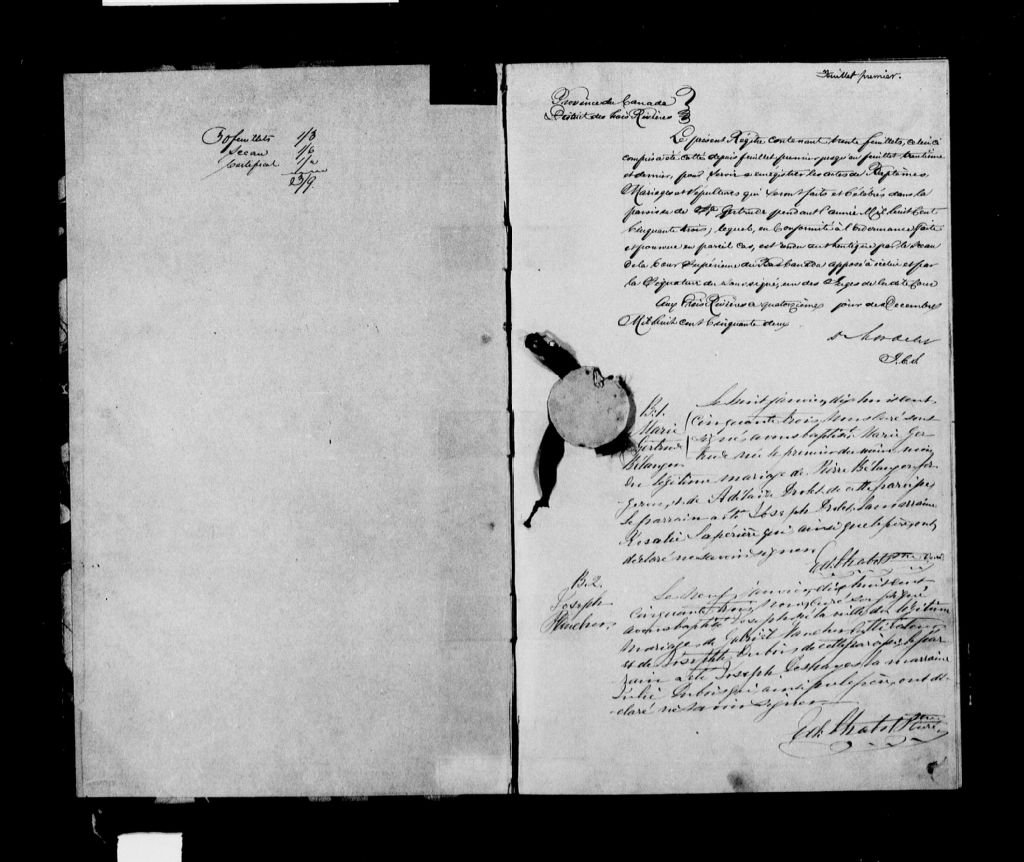 30 feuillets 1/3
Sceau 1/6
Certificat 1/"
3/9
Feuillet premier.
Province du Canada
District des Trois Rivières
Le présent Régître contenant trente feuillets, celui ci
compris a été cotté depuis feuillet premier jusqu'au feuillet trentième
et dernier, pour servir a enrégistrer les actes de Baptêmes
Mariages et Sépultures qui seront faits et célébrés dans la
paroisse de Ste Gertrude pendant l'année Mil huit Cent
Cinquante trois; lequel, en Conformité à l'ordonnance faite
et pourvue en pareil cas, est rendu authentique par le Sceau
de la Cour Supérieure du Bas Canada apposé à icelui et par
la Signature du soussigné, un des Juges de la dite Cour
Aux Trois Rivières ce quatorzième jour de Décembre
Mil huit cent Cinquante deux
B.1.
Marie
Gertrude
Bélanger
Le huit Janvier, dix huit cent
cinquante trois, Nous Curé sous
signé avons baptisé Marie Ger
trude née le premier du même mois
du légitime mariage de Pierre Bélanger for
geron, et de Adélaïde de cette paroisse
Le parrain a été Joseph La marraine
Rosalie qui ainsi que le père ont
déclaré ne savoir signer
Ed. Chabot Ptre Curé
B.2.
Joseph
Le neuf Janvier, dix huit cent
cinquante trois, Nous Curé soussigné
avons baptisé Joseph né la veille du légitime
mariage de
et de Josephte Dubois de cette paroisse le par
rain a été Joseph Deshayes la marraine
Julie Dubois qui ainsi que le père, ont dé
claré ne savoir signer
Ed. Chabot Ptre
Curé